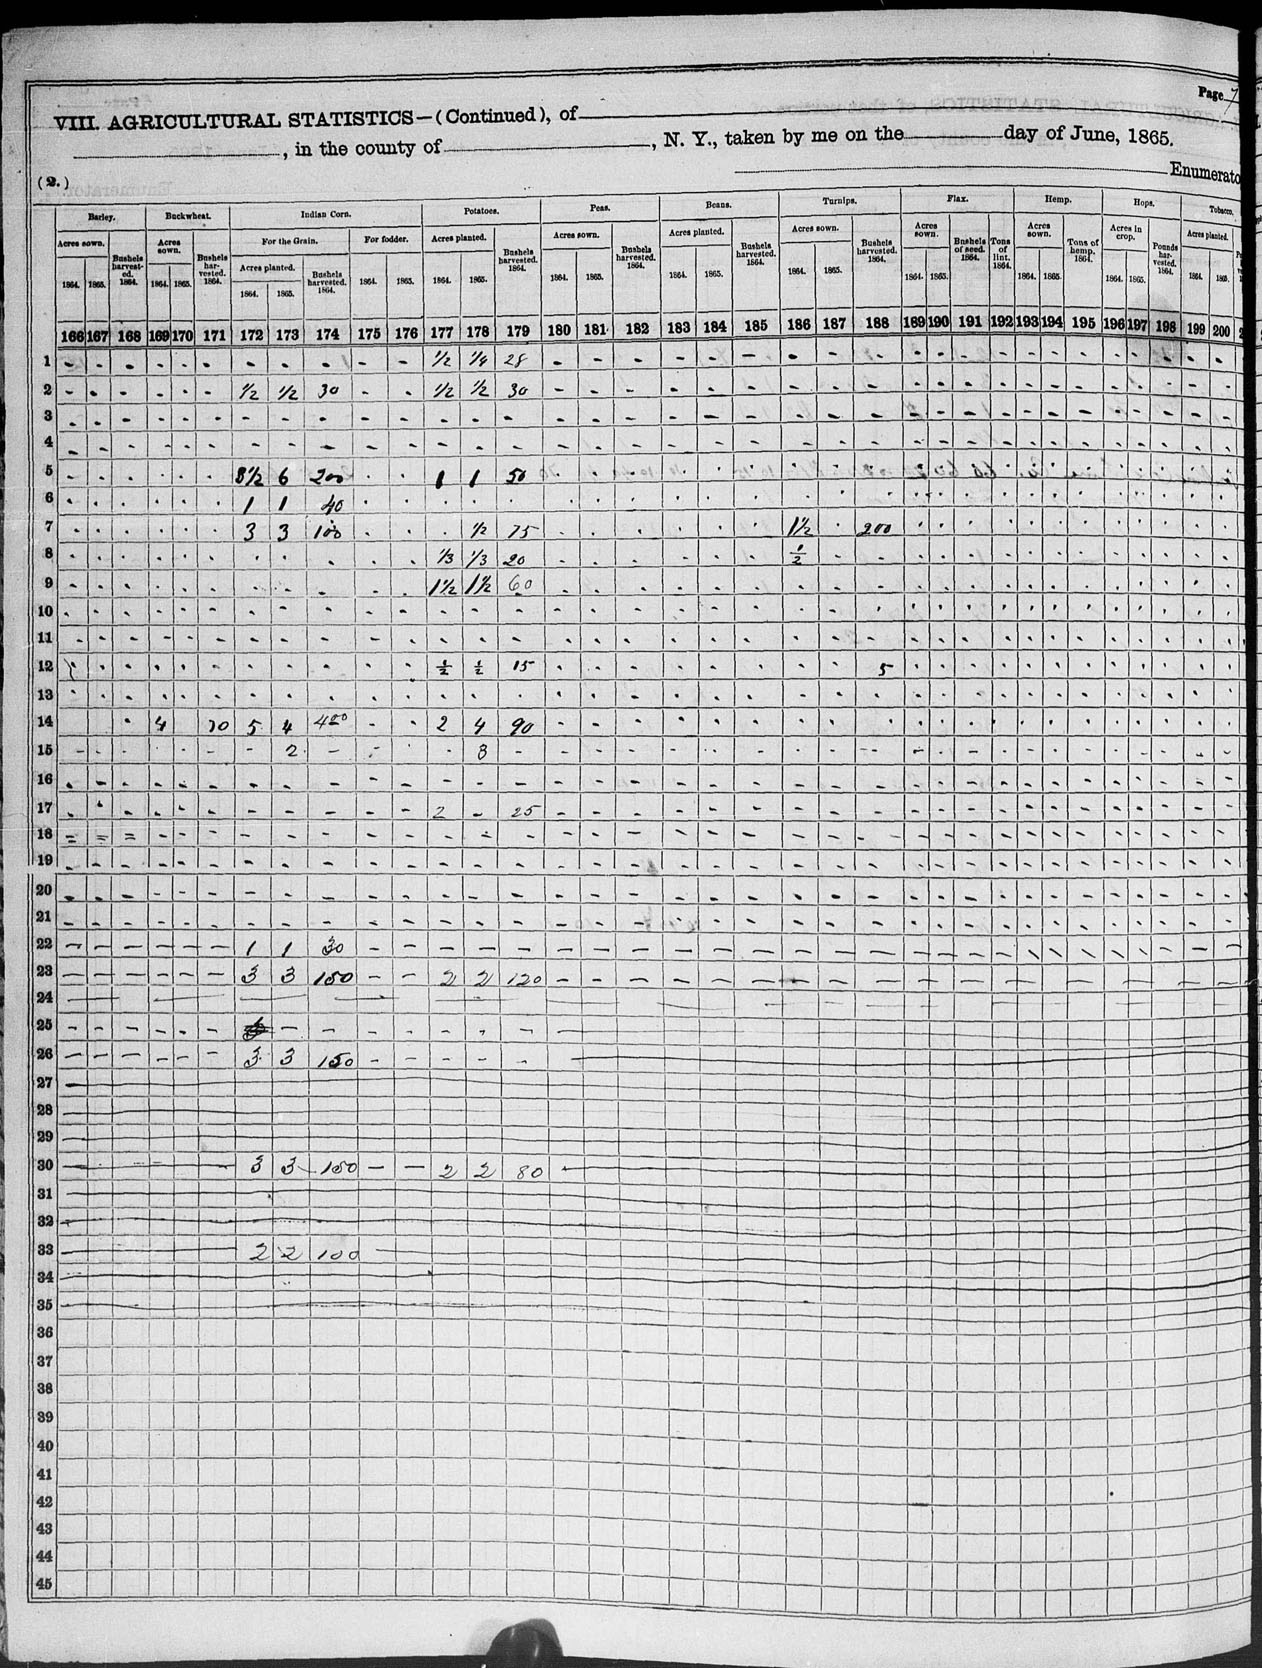 Page 7
VIII. AGRICULTURAL STATISTICS—(Continued), of
, in the county of , N. Y., taken by me on the day of June, 1865.
(2.) Enumerato
Barley. Buckwheat. Indian Corn. Potatoes. Peas. Beans. Turnips. Flax. Hemp. Hops. Tobacco.
Acres sown. Bushels harvest-ed. 1864. Acres sown. Bushels har-vested. 1864. For the Grain. For fodder. Acres planted. Bushels harvested. 1864. Acres sown. Bushels harvested. 1864. Acres planted. Bushels harvested. 1864. Acres sown. Bushels harvested. 1864. Acres sown. Bushels of seed. 1864. Tons of lint. 1864. Acres sown. Tons of hemp. 1864. Acres in crop. Pounds har-vested. 1864. Acres planted.
Acres planted. Bushels harvested. 1864.
1864. 1865. 1864. 1865. 1864. 1865. 1864. 1865. 1864. 1865. 1864. 1865. 1864. 1865. 1864. 1865. 1864. 1865. 1864. 1865. 1864. 1865. 1864. 1865.
166 167 168 169 170 171 172 173 174 175 176 177 178 179 180 181 182 183 184 185 186 187 188 189 190 191 192 193 194 195 196 197 198 199 200
1 - - - - - - - - - - 1/2 1/4 28 - - - - - - - - - - - - - - - - - - - - -
2 - - - - - - 1/2 1/2 30 - - 1/2 1/2 30 - - - - - - - - - - - - - - - - - - - - -
3
4
5 8 1/2 6 200 1 1 50
6 1 1 40
7 3 3 100 1/2 75 1 1/2 200
8 1/3 1/3 20 1/2
9 1 1/2 1 1/2 60
10
11
12 1/2 1/2 15 5
13
14 4 70 5 4 400 2 4 90
15 2 3
16
17 2 - 25
18
19
20
21
22 1 1 30
23 3 3 150 - - 2 2 120
24
25
26 3 3 150
27
28
29
30 3 3 150 — — 2 2 80
31
32
33 2 2 100
34
35
36
37
38
39
40
41
42
43
44
45